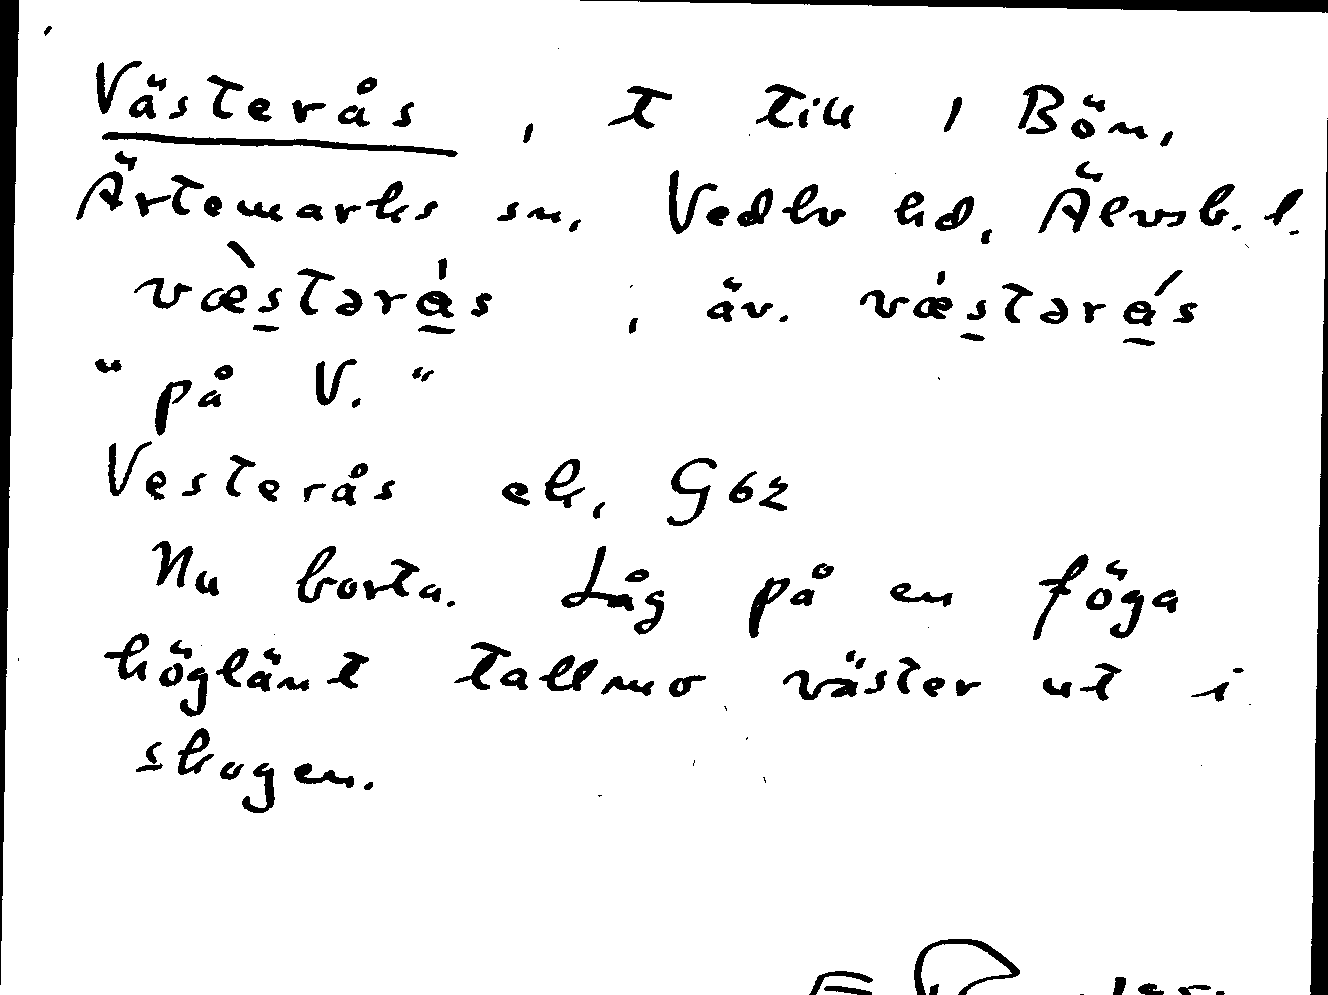 Västerås, t till 1 Bön,
Ärtemarks sn, Vedbo hd, Älvsb. l.
væ̀stəra̍s, äv. væ̍stərás
"på V."
Vesterås ek, G62
Nu borta. Låg på en föga
höglänt tallmo väster ut i
skogen.